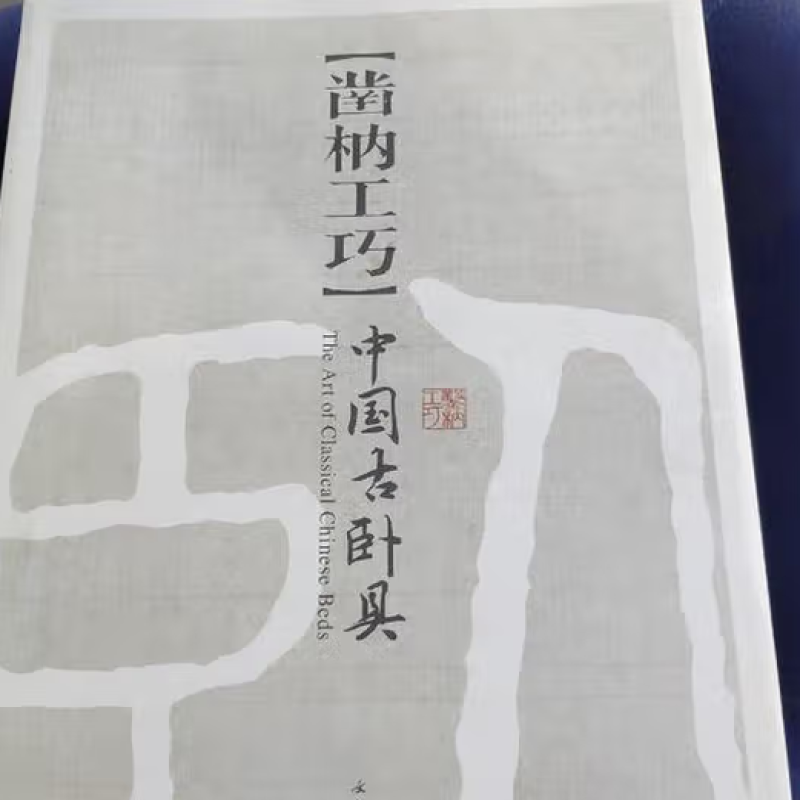 【凿枘工巧】
中国古卧具
The Art of Classical Chinese Beds